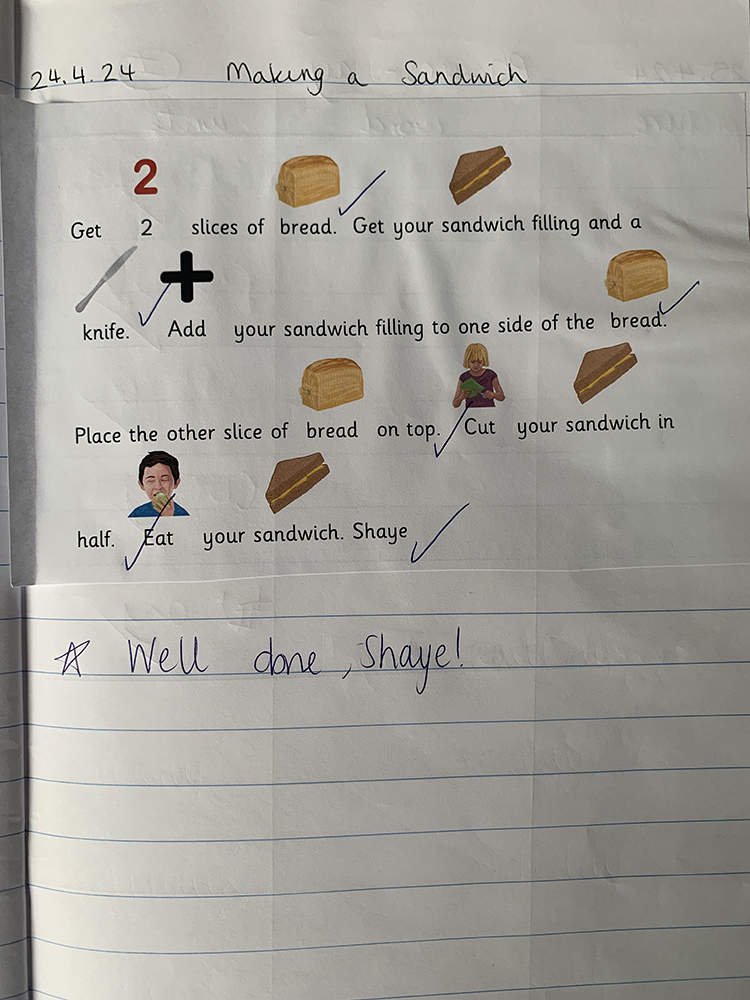 24.4.24 Making a Sandwich
2
Get 2 slices of bread. Get your sandwich filling and a
knife. Add your sandwich filling to one side of the bread.
Place the other slice of bread on top. Cut your sandwich in
half. Eat your sandwich. Shaye
Well done, Shaye!